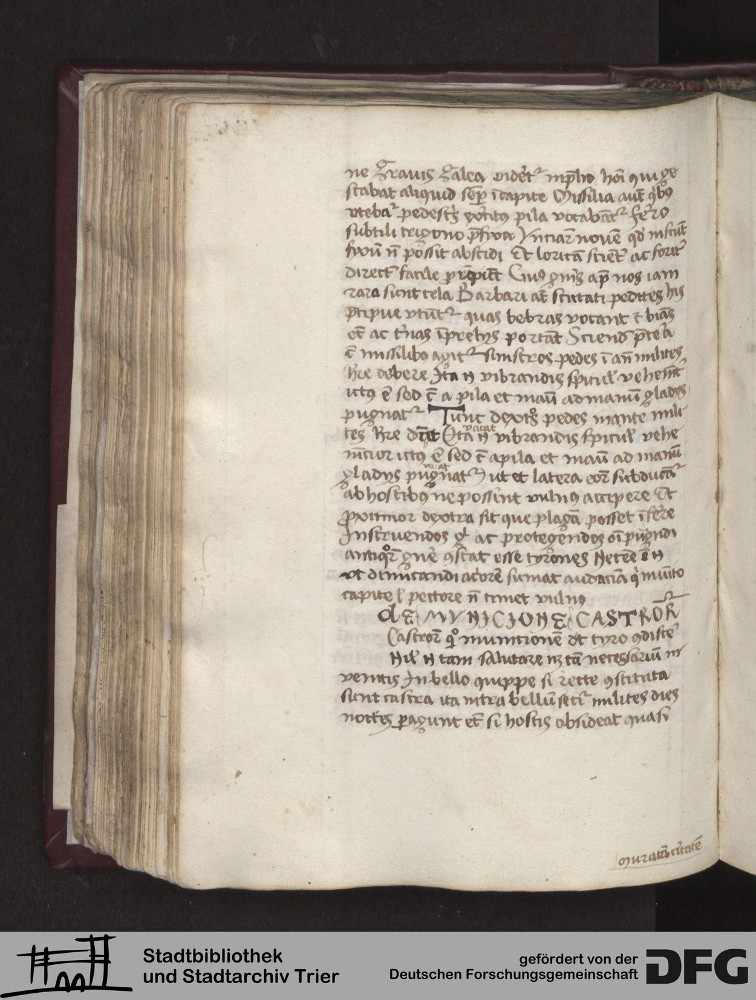 ne Grauis Galea videt᷑ in p̄lio hoı̄ qui ge
stabat aliquid semꝑ ı̄ capite Missilia aut̄ qͥbꝰ
vtebat᷑ pedestris exercitꝰ pila vocabāt᷑ ferro
subtili trigono p̄fixa vnciarū nouē qd̄ in scuto
fixū n̄ possit abscidi Et loricā scient̄ ac fortit̄
direct̄ facile prorūpit Cuiꝰ gn̄is ap̄ nos iam
rara sunt tela Barbari aūt scutati pedites his
p̄cipue vtunt᷑ quas bebras vocant ⁊ binas
et̄ ac t̓nas in preliis portāt Sciend̄ p̄terea
cū missilibꝰ agit᷑ sinistros pedes ı̄ an̄ milites
hr̄e debere Ita n̄ vibrandis spicul̄ vehem̄
ictꝰ ē sed cū a pila et manū ad manū gladiis
pugnat᷑ Tunc dextros pedes in ante mili
tes hr̄e
vacat
Ita n̄ vibrandis spicul̄ vehe
mencior ictꝰ ē sed cū a pila et manū ad manū
gladiis pugnat᷑
vacat
ut et latera eoꝝ subducāt᷑
ab hostibꝰ ne possint vulnꝰ accipere Et
proximior dextra sit que plagā posset ı̄ferre
Instruendos ac protegendos oı̄ pūgndi
antiqͦꝝ gn̄e ꝯstat esse tyrones Necesse ē n̄
vt dimicandi acrorē sumat audaciā qͥ munito
capite l̄ pectore n̄ timet vulnꝰ
de MVNICIONE CASTROR̄
Castroꝝ qͦꝫ munitionē d̄t tyro ꝯdisce
Nil̄ n̄ tam salutare nꝫ tā necessariū in
venitis In bello quippe si recte ꝯstituta
sunt castra ita intra bellū securi milites dies
noctes peragunt et̄ si hostis obsideat quasi
muratā ciuitatē
Stadtbibliothek
und Stadtarchiv Trier
gefördert von der
Deutschen Forschungsgemeinschaft
DFG